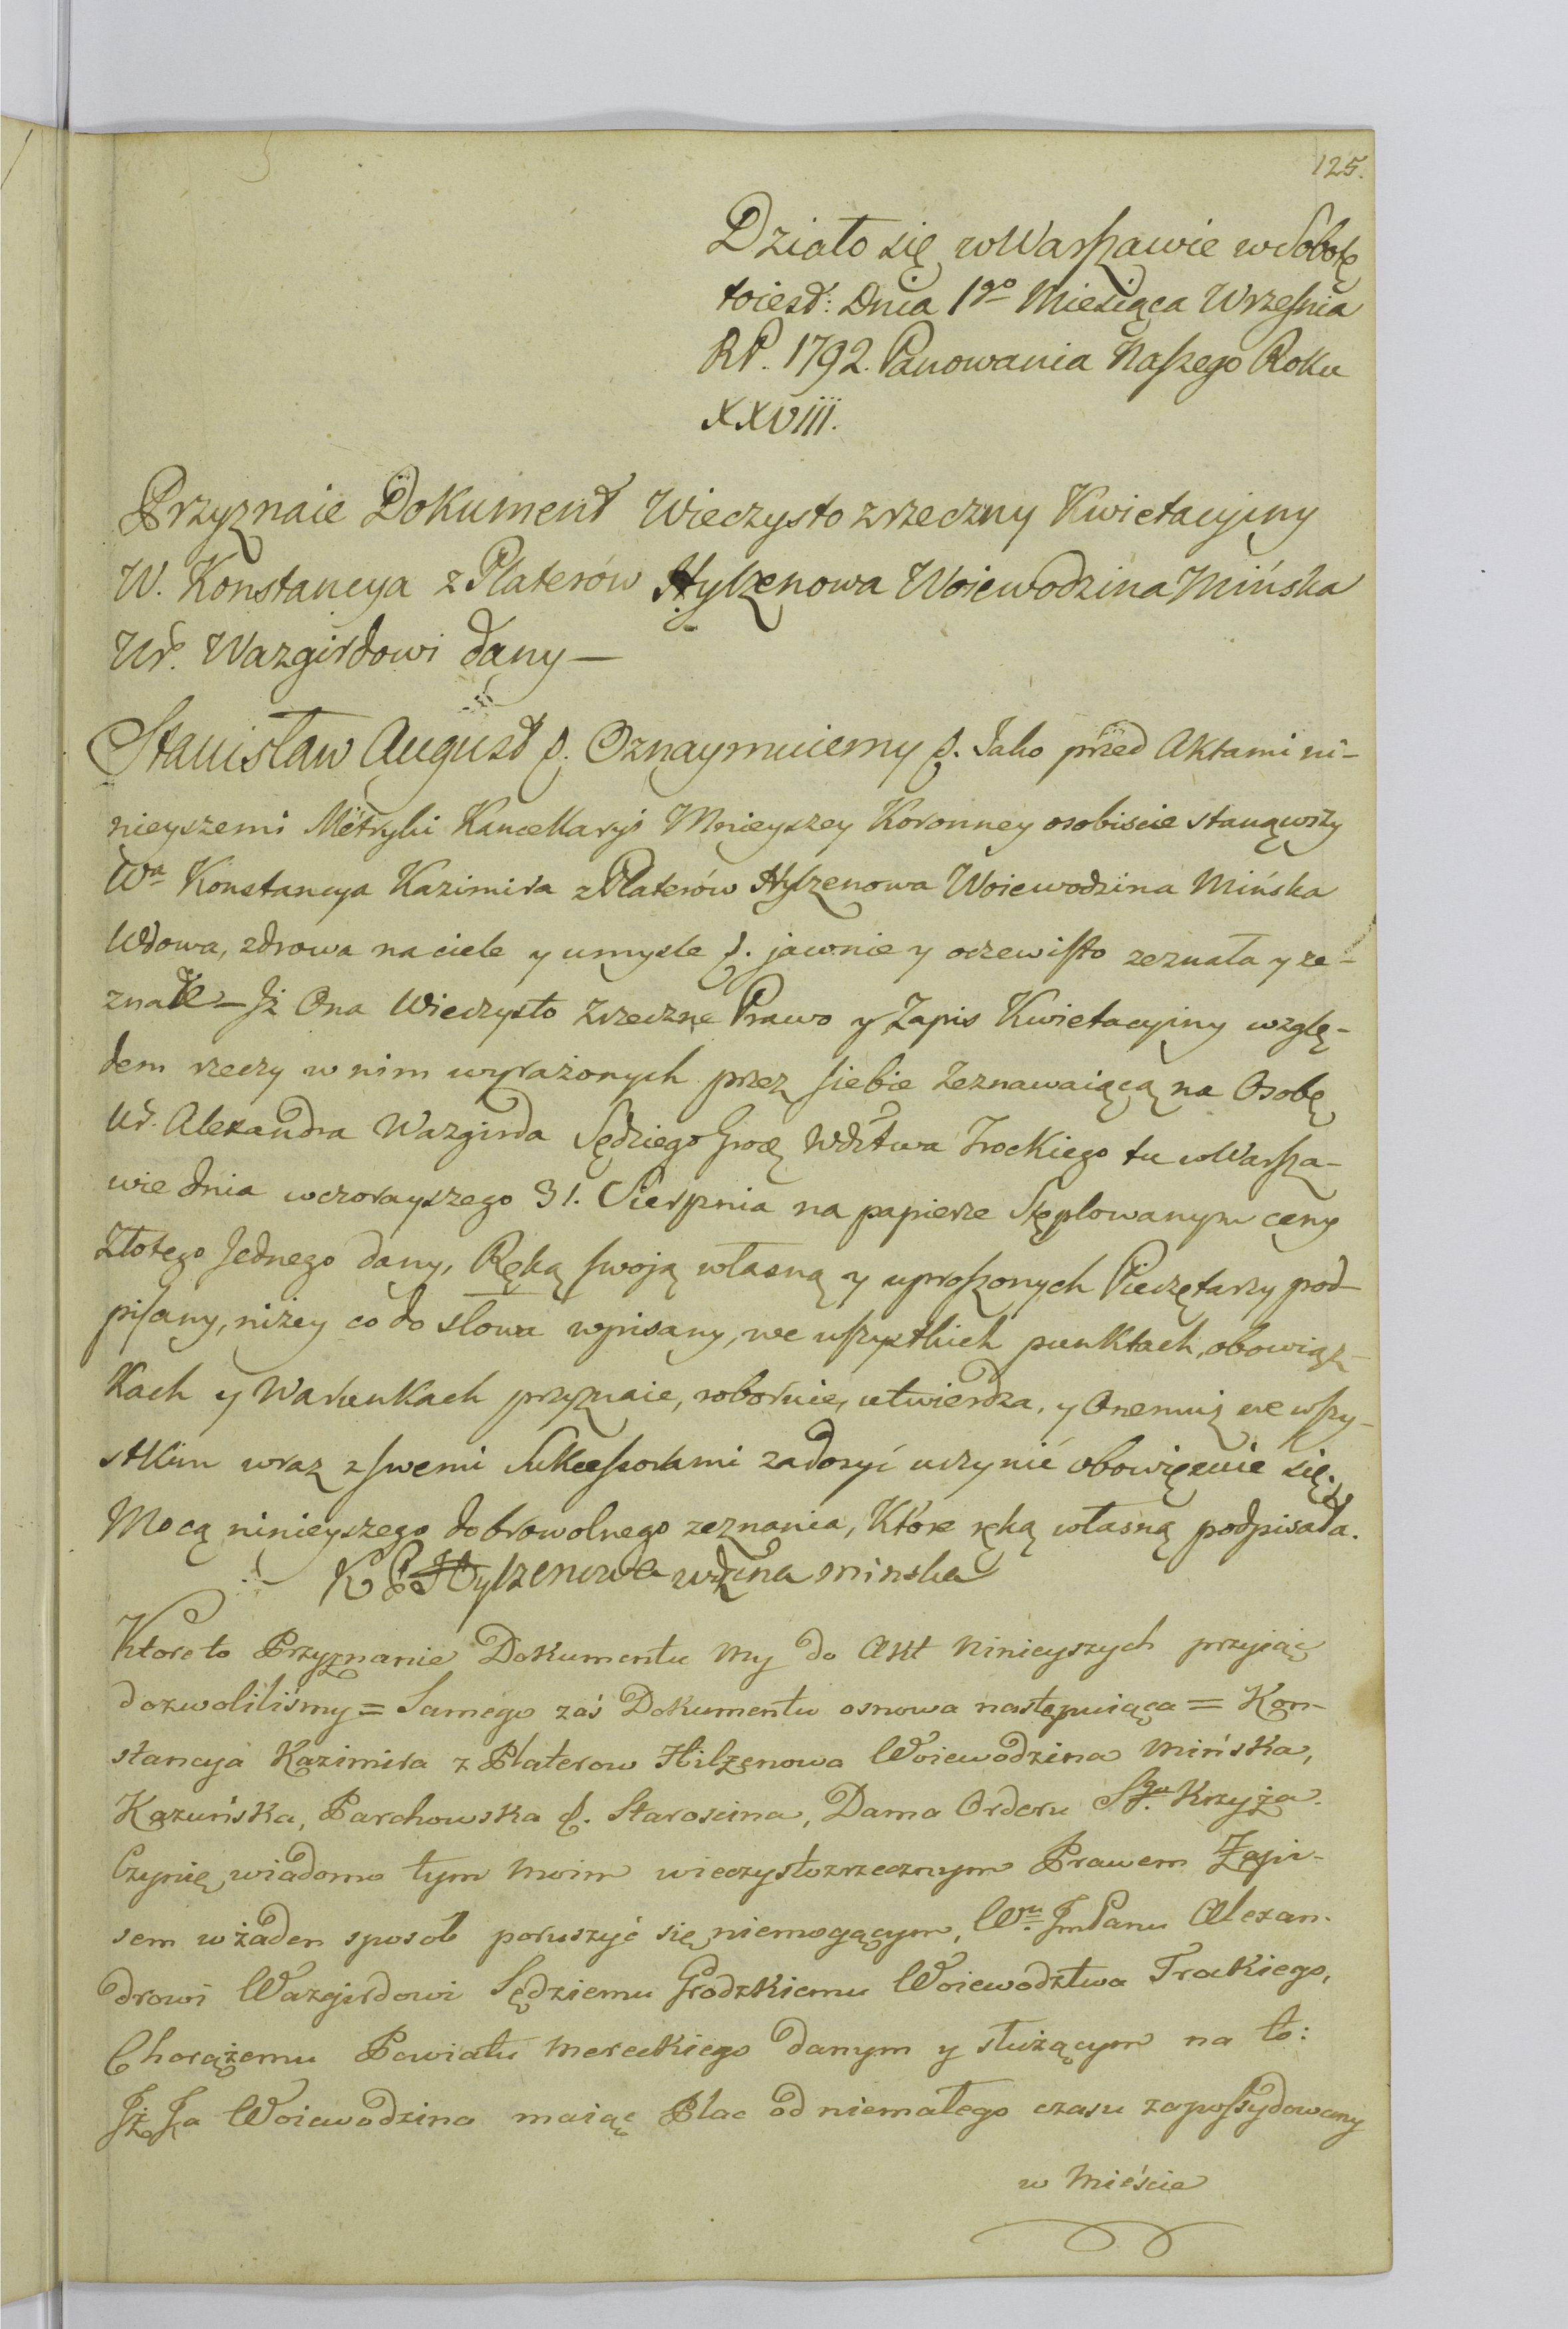 125.
Działo się w Warszawie w Sobotę
toiest: Dnia 1go Miesiąca Wrzesnia
RP. 1792. Panowania Naszego Roku
XXVIII.
Przyznaie Dokument Wieczysto zrzeczny Kwietacyjny
W. Konstancya z Platerów Hylzenowa Woiewodzina Mińska
Ur. Wazgirdowi dany —
Stanisław August &. Oznaymuiemy &. Jako przed Aktami ni-
nieyszemi Metryki Kancellaryi Mnieyszey Koronney osobiscie stanąwszy
Wa Konstancya Kazimira z Platerów Hylzenowa Woiewodzina Mińska
Wdowa, zdrowa na ciele y umysle &. jawnie y oczewisto zeznała y ze-
znaie — Jż Ona Wieczysto Zrzeczne Prawo y Zapis Kwietacyjny wzglę-
dem rzeczy w nim wyrażonych przez siebie Zeznawaiącą na Osobę
Ur. Alexandra Wazgirda Sędziego Grodz Wdztwa Trockiego tu w Warsza-
wie dnia wczorayszego 31. Sierpnia na papierze Stęplowanym ceny
Złotego Jednego dany, Ręką swoją własną y uproszonych Pieczętarzy pod-
pisany, niżey co do słowa wpisany, we wszystkich punktach, obowiąz-
kach y Warunkach przyznaie, roboruie, utwierdza, y Onemuż we wszy-
stkim wraz z swemi Sukcessorami zadosyć uczynić obowięzuie się.
Mocą ninieyszego dobrowolnego zeznania, Które ręką własną podpisała.
K P Hylzenowa wdzina minska
Ktore to Przyznanie Dokumentu My do Akt Ninieyszych przyiąć
dozwoliliśmy = Samego zaś Dokumentu osnowa następuiąca = Kon-
stancya Kazimira z Platerow Hilzenowa Woiewodzina Mińska,
Kazuńska, Parchowska &. Staroscina, Dama Orderu Sgo. Krzyża.
Czynię wiadomo tym moim wieczystozrzecznym Prawem Zapi-
sem w żaden sposob poruszyć się niemogącym, Wmu JmPanu Alexan-
drowi Wazgirdowi Sędziemu Grodzkiemu Woiewodztwa Trockiego,
Chorążemu Powiatu Mereckiego danym y służącym na to:
Jż Ja Woiewodzina maiąc Plac od niemałego czasu zapossydowany
w Mieście